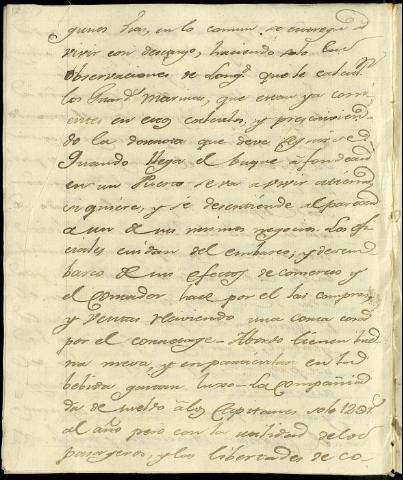 gunos dias, en lo comun se entregan á
vivir con descanso, haciendo solo las
observaciones de Longd que le calculan
los Guards Marinas, que estan ya corri
entes en estos calculos, y presciniendo
de la que deve
Quando llega el buque á fondear
en un Puerto se va a vivir atierra
si quiere, y se desentiende al parecer
aun de sus mismos negocios. Los ofi
ciales cuidan del embarco, y desem
barco de sus efectos de comercio y
el Contador hace por el las compras,
y ventas llevando una corta
por el corretage. Abordo tienen bue
na mesa, y en particular en la
bebida gastan luxo. La Compañia
da de sueldo á los Capitanes solo
al año pero con la utilidad de los
pasageros, y las libertades de co-